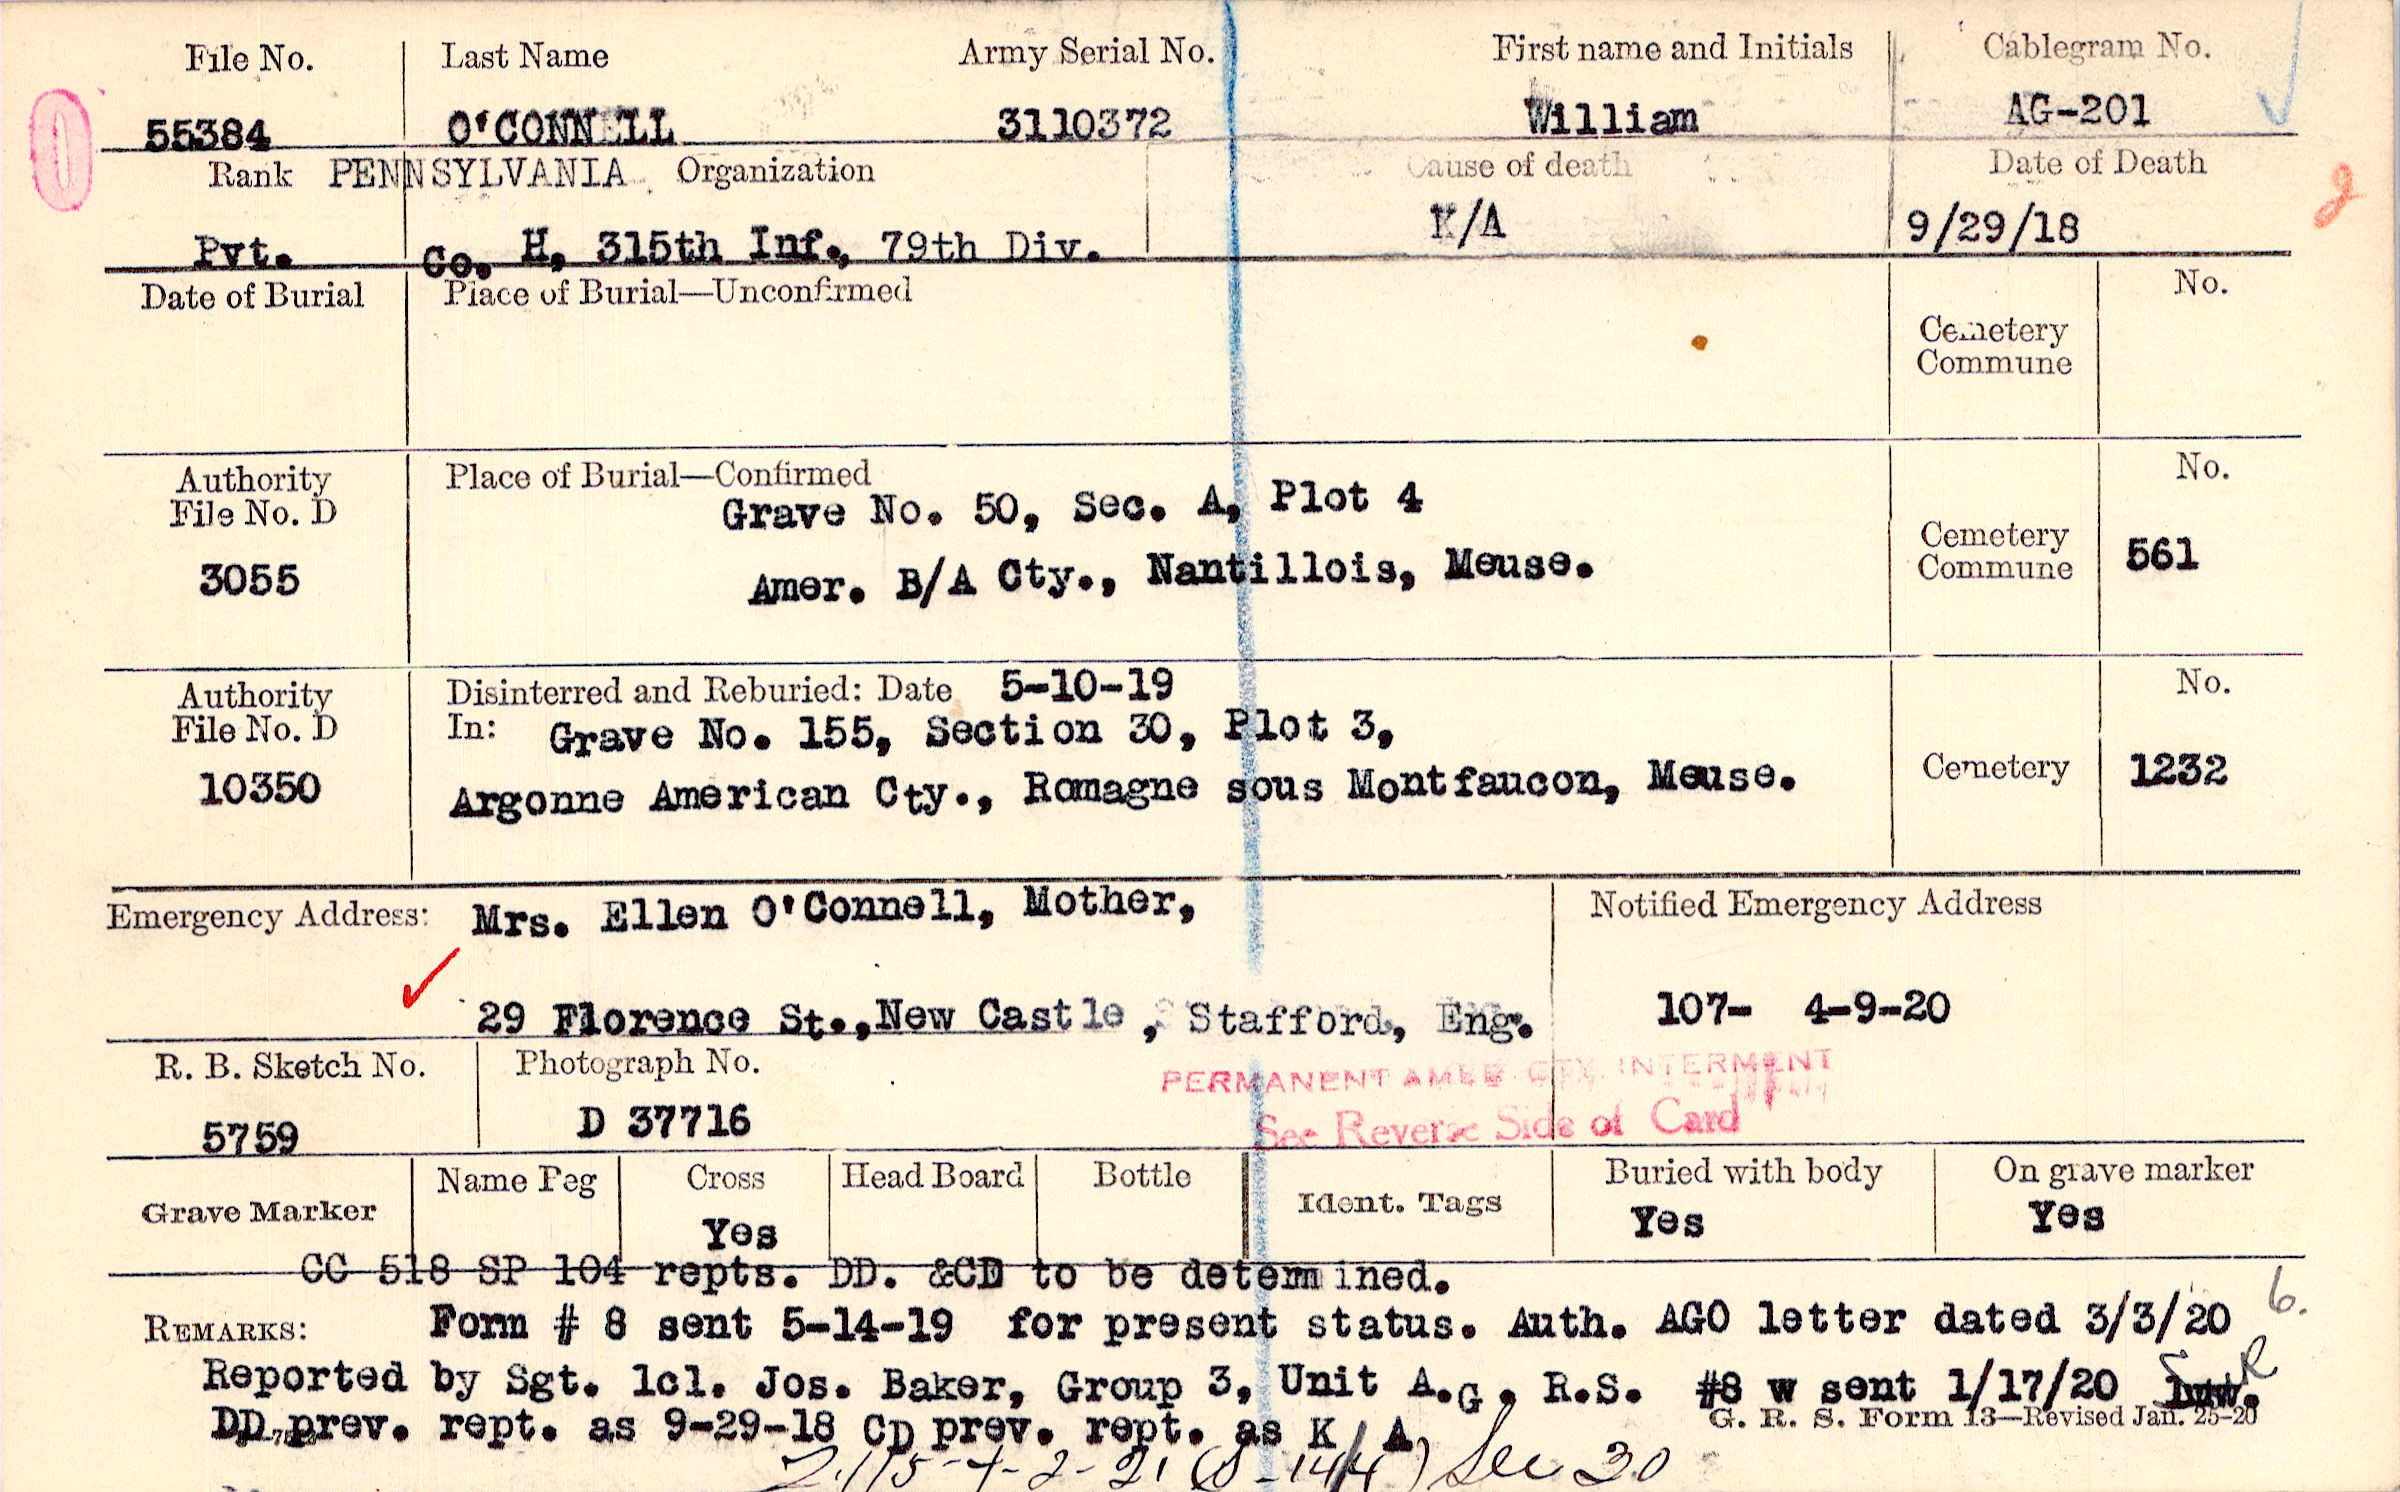 File No. Last Name Army Serial No. First name and Initials Cablegram No.
0 55384 O'CONNELL 3110372 William AG-201
Rank PENNSYLVANIA Organization Cause of death Date of Death 2
Pvt. Co. H, 315th Inf., 79th Div. K/A 9/29/18
Date of Burial Place of Burial—Unconfirmed No.
Cemetery
Commune
Authority Place of Burial—Confirmed No.
File No. D Grave No. 50, Sec. A, Plot 4
Cemetery
3055 Amer. B/A Cty., Nantillois, Meuse. Commune 561
Authority Disinterred and Reburied: Date 5-10-19 No.
File No. D In: Grave No. 155, Section 30, Plot 3,
10350 Argonne American Cty., Romagne sous Montfaucon, Meuse. Cemetery 1232
Emergency Address: Mrs. Ellen O'Connell, Mother, Notified Emergency Address
29 Florence St., New Castle , Stafford, Eng. 107- 4-9-20
R. B. Sketch No. Photograph No. PERMANENT AMER. CTY. INTERMENT
5759 D 37716 See Reverse Side of Card
Grave Marker Name Peg Cross Head Board Bottle Ident. Tags Buried with body On grave marker
Yes Yes Yes
CC 518 SP 104 repts. DD. &CD to be determined.
REMARKS: Form # 8 sent 5-14-19 for present status. Auth. AGO letter dated 3/3/20 6.
Reported by Sgt. 1cl. Jos. Baker, Group 3, Unit A.G. R.S. #8 w sent 1/17/20
DD prev. rept. as 9-29-18 CD prev. rept. as K/A G. R. S. Form 13—Revised Jan. 25-20
4-2-21 (S-144) Sec 30